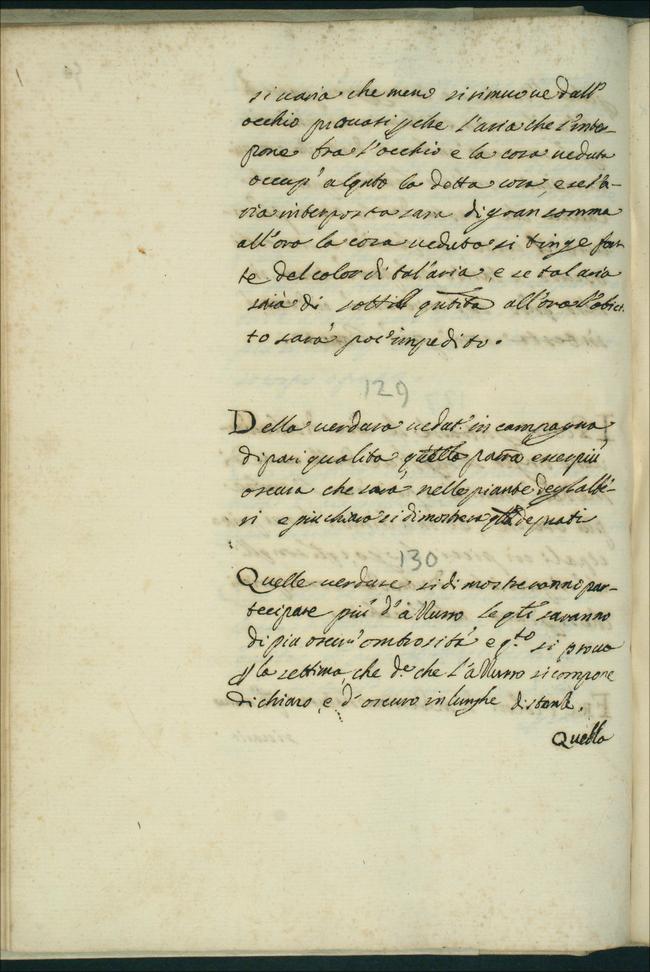 si uaria che meno si rimuoue dall'
occhio prouasi pche l'aria che s'inter-
pone tra l'occhio e la cosa ueduta
occup' alqnto la detta cosa, e se l'a-
ria interposta sara di gran somma
all'ora la cosa ueduta si tinge for-
te del color di tal'aria, e se tal aria
sarà di sottil qntita all'ora l'obiet-
to sarà poc' impedito.
129
Della uerdura uedut' in campagna,
di pari qualita quella parrà esser più
oscura che sarà nelle piante degl'albe-
ri e piu chiara si dimostrera de prati
130
Quelle uerdure si dimostreranno par-
tecipare più d'azzurro le qli saranno
di piu oscur' ombrosità e qto si proua
p la settima che de che l'azzurro si compone
di chiaro, e d'oscuro in lunghe distante.
Quella